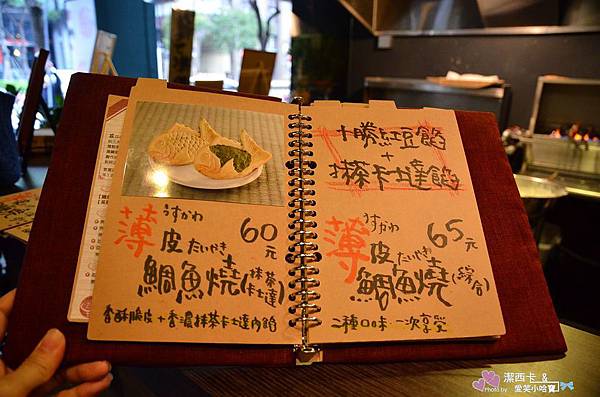 薄
うすかわ
皮たいやき
60元
鯛魚燒(抹茶卡士達)
香酥脆皮+香濃抹茶卡士達內餡
十勝紅豆餡
+
抹茶卡士達餡
薄
うすかわ
皮たいやき
65元
鯛魚燒(綜合)
二種口味 一次享受
潔西卡 &
Photo by 愛笑小哈寶